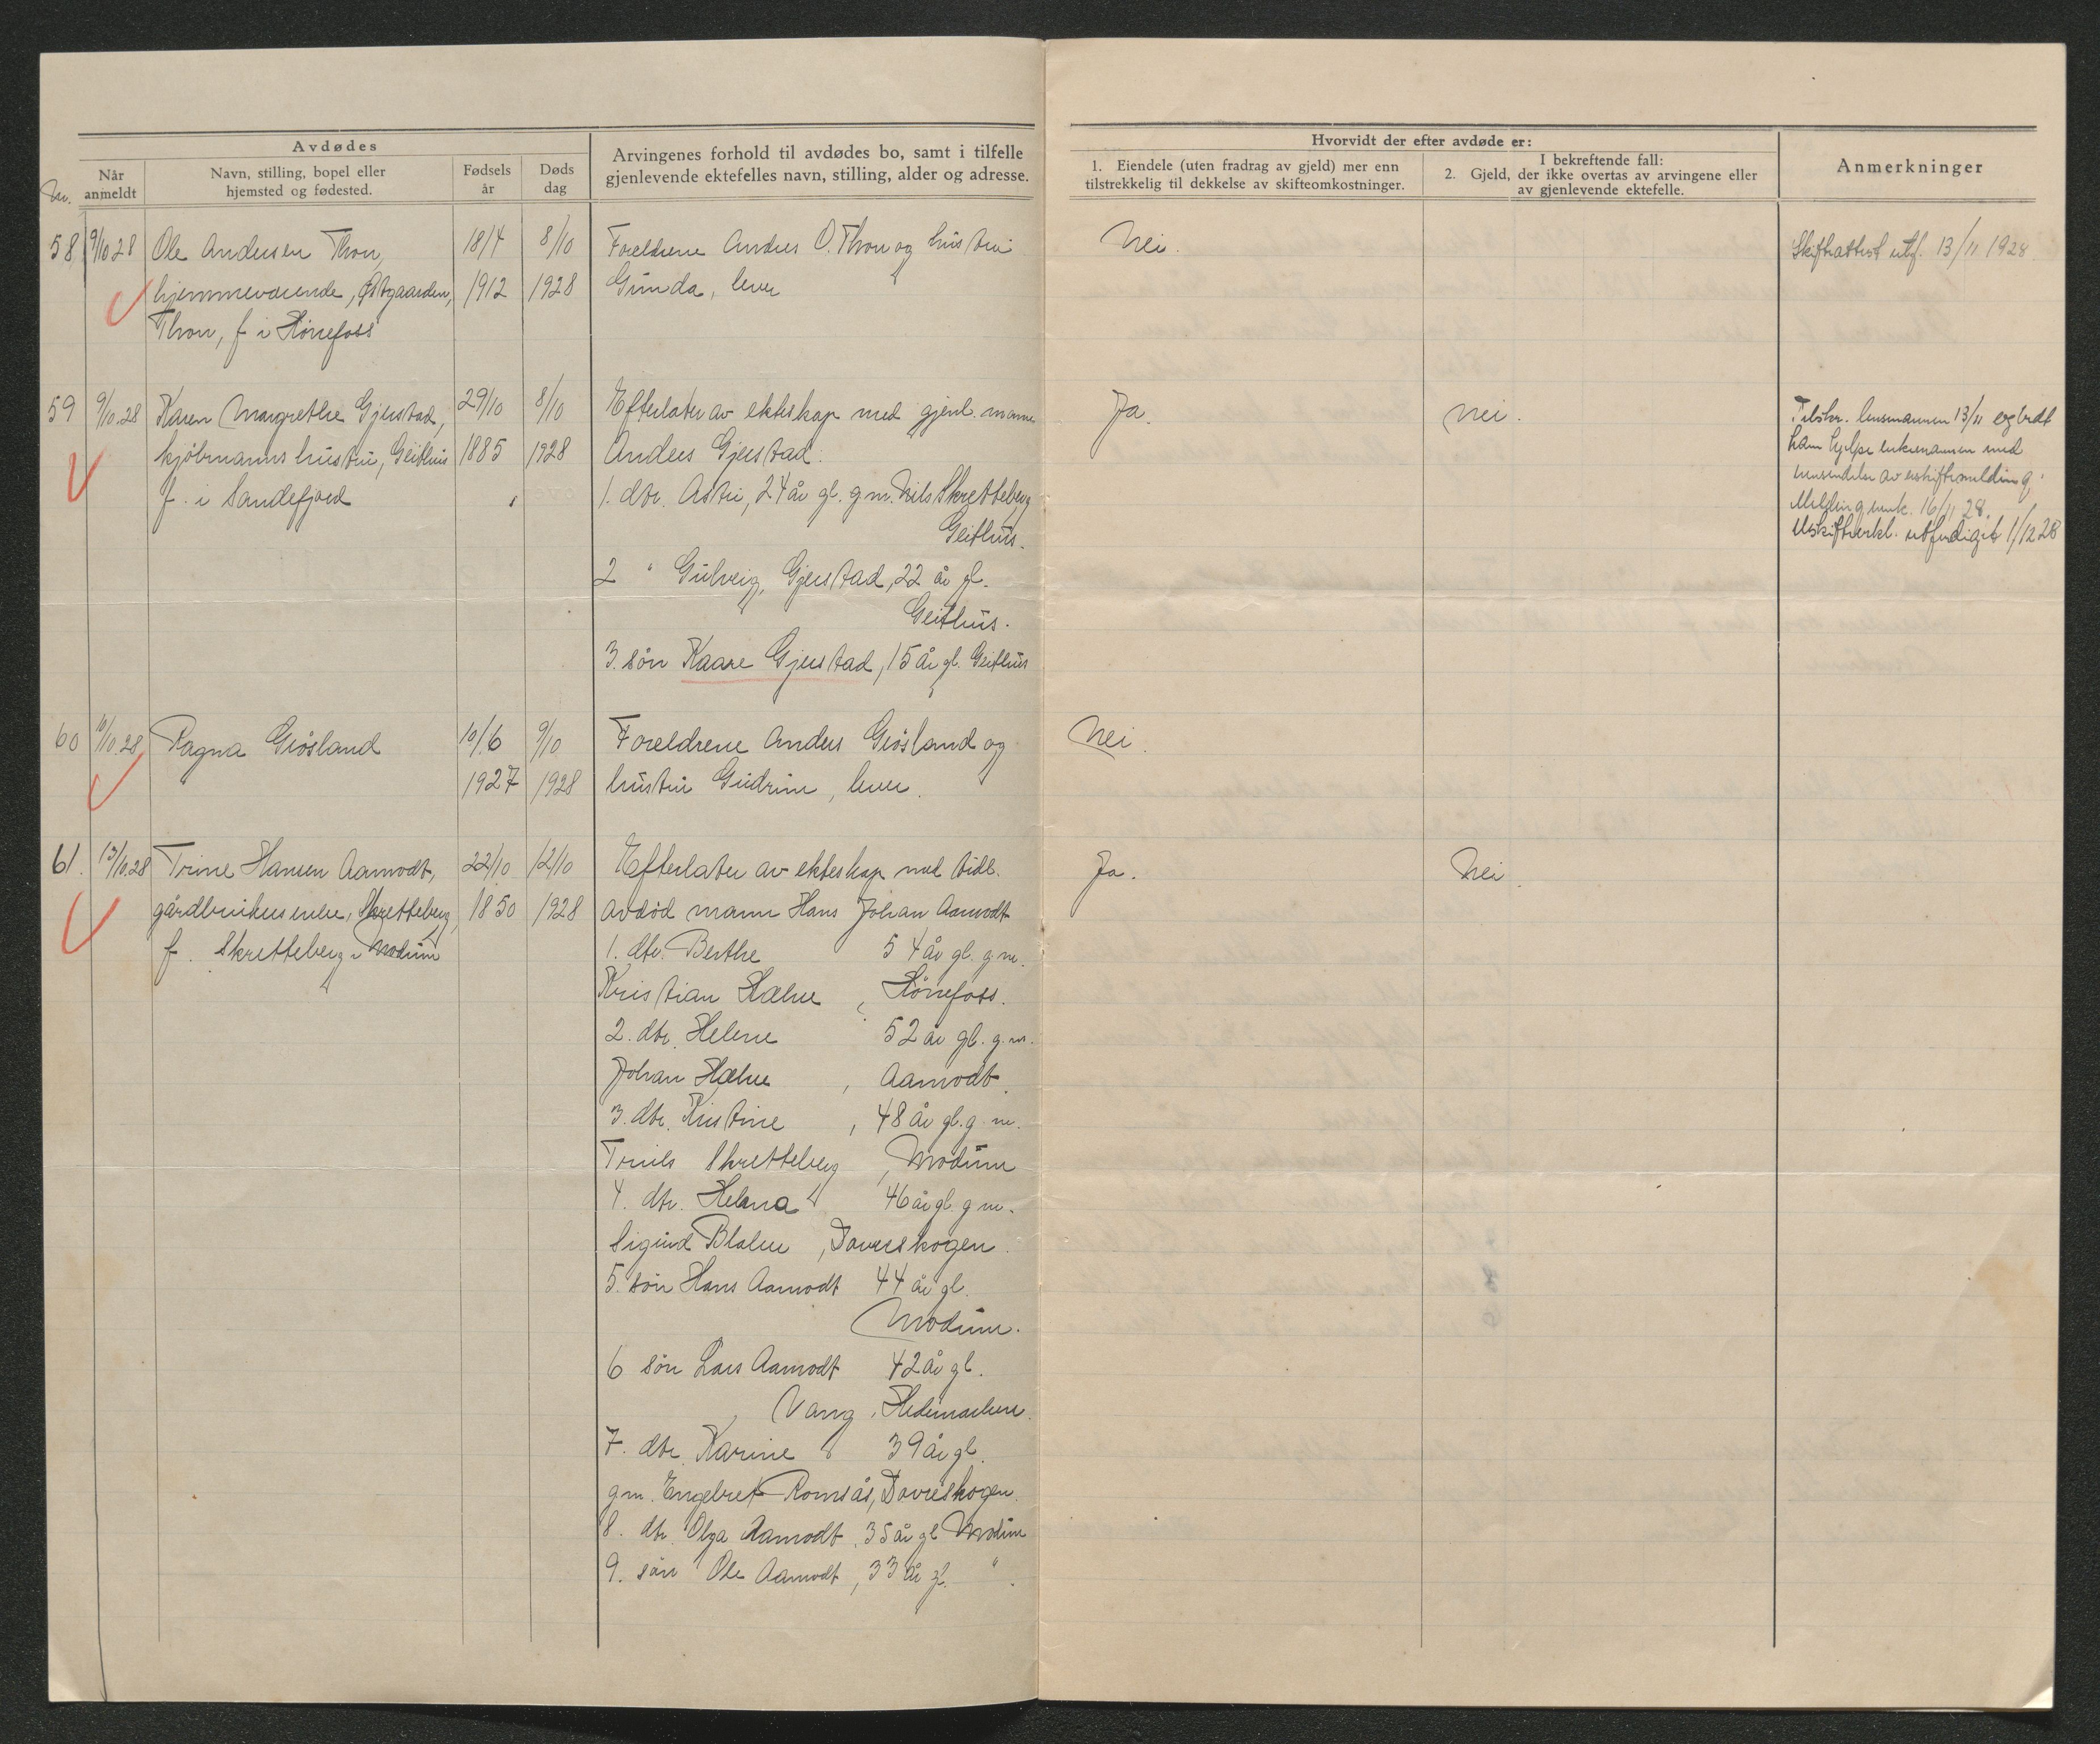 Avdødes
Nr.
Når anmeldt
Navn, stilling, bopel eller hjemsted og fødested.
Fødsels år
Døds dag
Arvingenes forhold til avdødes bo, samt i tilfelle gjenlevende ektefelles navn, stilling, alder og adresse.
Hvorvidt der efter avdøde er:
1. Eiendele (uten fradrag av gjeld) mer enn tilstrekkelig til dekkelse av skifteomkostninger.
I bekreftende fall:
2. Gjeld, der ikke overtas av arvingene eller av gjenlevende ektefelle.
Anmerkninger
58 9/10 28 Ole Andersen Thon, 18/4 8/10 Foreldrene Anders O. Thon og hustru Nei. Skifteattest utf. 13/11 1928.
hjemmeværende, Østgaarden, 1912 1928 Gunda, lever
Thon, f i Hønefoss
59 9/10.28 Karen Margrethe Gjerstad, 29/10 8/10 Efterlater av ekteskap med gjenl. mann Ja. Nei. Tilskr. lensmannen 13/11 og bedt
kjøbmanns hustru, Geithus 1885 1928 Anders Gjerstad. ham hjelpe enkemannen med
f. i Sandefjord 1. dtr. Astri, 24 år gl. g.m. Nils Skretteberg innsendelse av uskiftemelding,
Geithus. Melding innk. 16/11 28.
Uskifteerkl. utferdiget 1/12 28
2 " Gulveig, Gjerstad, 22 år gl.
Geithus.
3. søn Kaare Gjerstad, 15 år gl. Geithus
60 10/10.28 Ragna Grøsland 10/6 9/10 Foreldrene Anders Grøsland og Nei.
1927 1928 hustru Gudrun, lever.
61. 13/10.28 Trine Hansen Aamodt, 22/10 12/10 Efterlater av ekteskap med tidl. Ja. Nei.
gårdbrukerenke, Skretteberg, 1850 1928 avdød mann Hans Johan Aamodt
f. Skretteberg i Modum 1. dtr. Berthe 54 år gl. g.m.
Kristian Hælue, Hønefoss.
2. dtr. Helene 52 år gl. g.m.
Johan Hælue, Aamodt.
3. dtr. Kristine, 48 år gl. g.m.
Truls Skretteberg, Modum
4. dtr. Helena 46 år gl. g.m.
Sigurd Blalen, Daverskogen.
5. søn Hans Aamodt 44 år gl.
Modum.
6 søn Lars Aamodt 42 år gl.
Vang, Hedemarken.
7. dtr. Karine 39 år gl.
g.m. Engebret Romsås, Doverskogen.
8. dtr. Olga Aamodt, 35 år gl Modum
9. søn Ole Aamodt, 33 år gl. " .